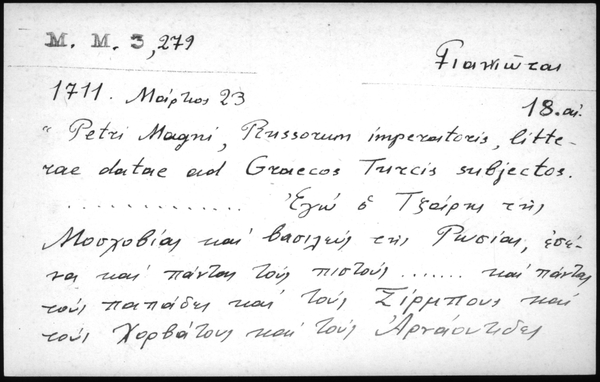 M. M. 3,279
Γιαννιῶται
1711. Μάρτιος 23
18. αἰ.
" Petri Magni, Russorum imperatoris, litte-
rae datae ad Graecos Turcis subjectos.
.............. Ἐγώ ὁ Τζάρης τῆς
Μοσχοβίας καί βασιλεύς τῆς Ρωσίας, ἐσέ-
να καί πάντας τούς πιστούς ....... καί πάντας
τούς παπάδες καί τούς Σίρμπους καί
τούς Χορβάτους καί τούς Ἀρναουτιδες